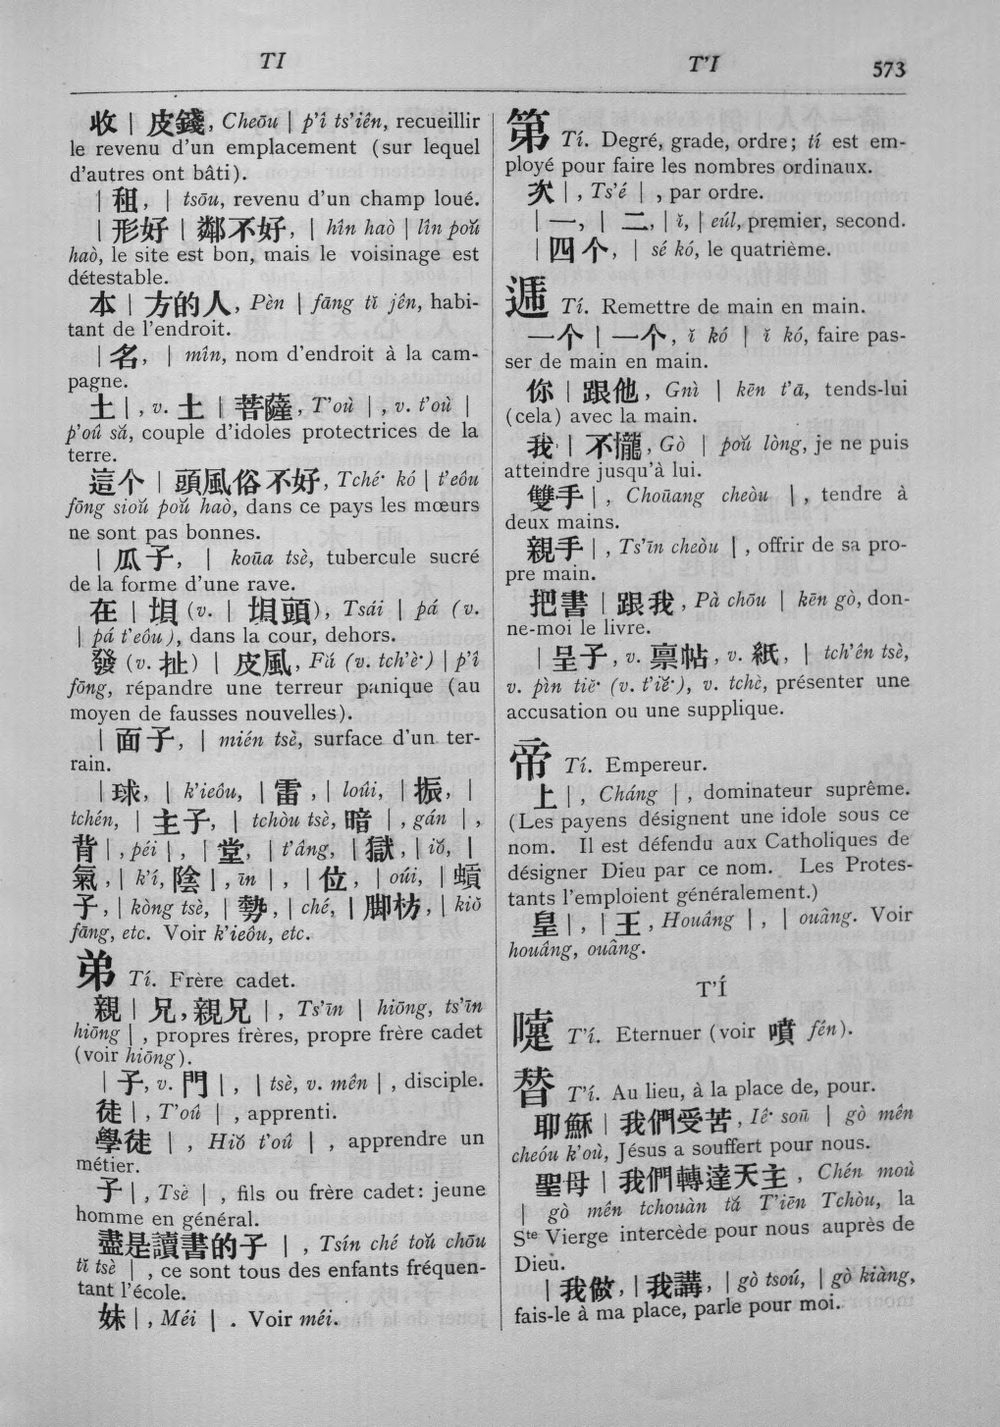 TI
T'I
573
收 | 皮錢, Cheōu | p'î ts'iên, recueillir
le revenu d'un emplacement (sur lequel
d'autres ont bâti).
| 租, | tsōu, revenu d'un champ loué.
| 形好 | 鄰不好, | hîn haò | lîn poŭ
haò, le site est bon, mais le voisinage est
détestable.
本 | 方的人, Pèn | fāng tĭ jên, habi-
tant de l'endroit.
| 名, | mîn, nom d'endroit à la cam-
pagne.
土 |, v. 土 | 菩薩, T'où |, v. t'où |
p'oû să, couple d'idoles protectrices de la
terre.
這个 | 頭風俗不好, Tché· kó | t'eôu
fōng sioŭ poŭ haò, dans ce pays les mœurs
ne sont pas bonnes.
| 瓜子, | koūa tsè, tubercule sucré
de la forme d'une rave.
在 | 垻 (v. | 垻頭), Tsái | pá (v.
| pá t'eôu), dans la cour, dehors.
發 (v. 扯) | 皮風, Fă (v. tch'è·) | p'î
fōng, répandre une terreur panique (au
moyen de fausses nouvelles).
| 面子, | mién tsè, surface d'un ter-
rain.
| 球, | k'ieôu, | 雷, | loûi, | 振, |
tchén, | 主子, | tchòu tsè, 暗 |, gán |,
背 |, péi |, | 堂, | t'âng, | 獄, | iŏ, |
氣, | k'í, 陰 |, īn |, | 位, | oúi, | 蟥
子, | kòng tsè, | 勢, | ché, | 脚枋, | kiŏ
fāng, etc. Voir k'ieôu, etc.
弟 Tí. Frère cadet.
親 | 兄, 親兄 |, Ts'īn | hiōng, ts'īn
hiōng |, propres frères, propre frère cadet
(voir hiōng).
| 子, v. 門 |, | tsè, v. mên |, disciple.
徒 |, T'oû |, apprenti.
學徒 |, Hiŏ t'oû |, apprendre un
métier.
子 |, Tsè |, fils ou frère cadet: jeune
homme en général.
盡是讀書的子 |, Tsín ché toŭ chōu
tĭ tsè |, ce sont tous des enfants fréquen-
tant l'école.
妹 |, Méi |. Voir méi.
第 Tí. Degré, grade, ordre; tí est em-
ployé pour faire les nombres ordinaux.
次 |, Ts'é |, par ordre.
| 一, | 二, | ĭ, | eúl, premier, second.
| 四个, | sé kó, le quatrième.
遞 Tí. Remettre de main en main.
一个 | 一个, ĭ kó | ĭ kó, faire pas-
ser de main en main.
你 | 跟他, Gnì | kēn t'ā, tends-lui
(cela) avec la main.
我 | 不攏, Gò | poŭ lòng, je ne puis
atteindre jusqu'à lui.
雙手 |, Choūang cheòu |, tendre à
deux mains.
親手 |, Ts'īn cheòu |, offrir de sa pro-
pre main.
把書 | 跟我, Pà chōu | kēn gò, don-
ne-moi le livre.
| 呈子, v. 禀帖, v. 紙, | tch'ên tsè,
v. pìn tiĕ· (v. t'iĕ·), v. tchè, présenter une
accusation ou une supplique.
帝 Tí. Empereur.
上 |, Cháng |, dominateur suprême.
(Les payens désignent une idole sous ce
nom. Il est défendu aux Catholiques de
désigner Dieu par ce nom. Les Protes-
tants l'emploient généralement.)
皇 |, | 王, Houâng |, | ouâng. Voir
houâng, ouâng.
T'Í
嚏 T'í. Eternuer (voir 噴 fén).
替 T'í. Au lieu, à la place de, pour.
耶穌 | 我們受苦, Iê· soū | gò mên
cheóu k'où, Jésus a souffert pour nous.
聖母 | 我們轉達天主, Chén moù
| gò mên tchouàn tă T'iēn Tchòu, la
Ste Vierge intercède pour nous auprès de
Dieu.
| 我做, | 我講, | gò tsoú, | gò kiàng,
fais-le à ma place, parle pour moi.